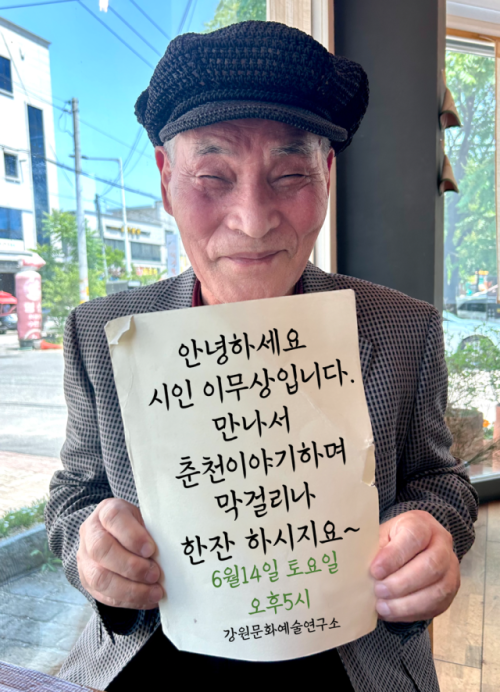 안녕하세요
시인 이무상입니다.
만나서
춘천이야기하며
막걸리나
한잔 하시지요~
6월14일 토요일
오후5시
강원문화예술연구소